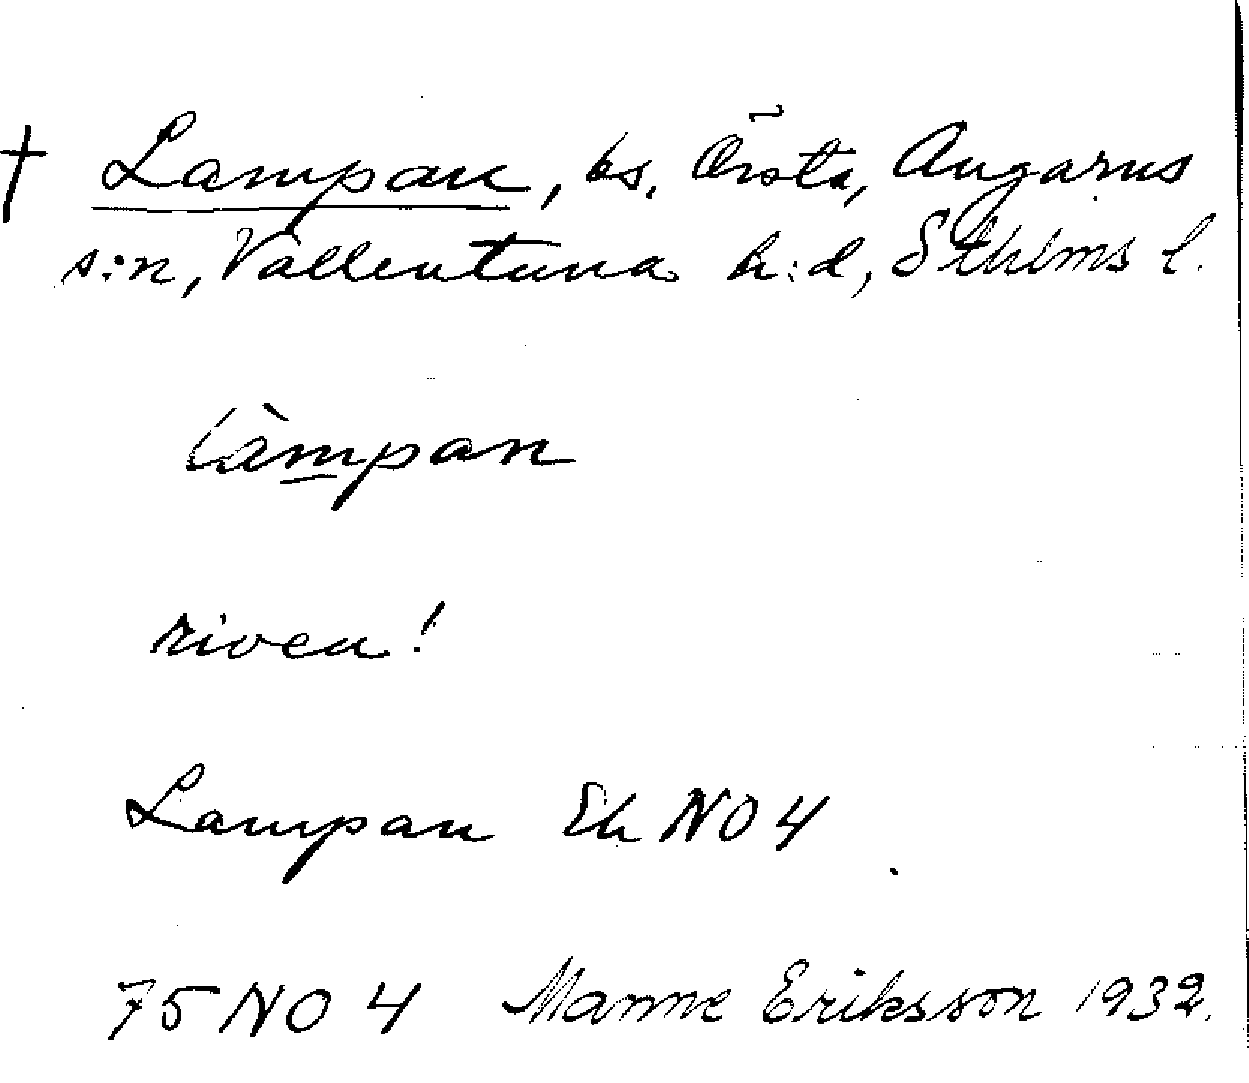 † Lampan, bs. Örsta, Angarns
s:n, Vallentuna h:d, Sthlms l.
làmpan
riven!
Lampan Ek NO 4
75 NO 4 Manne Eriksson 1932.